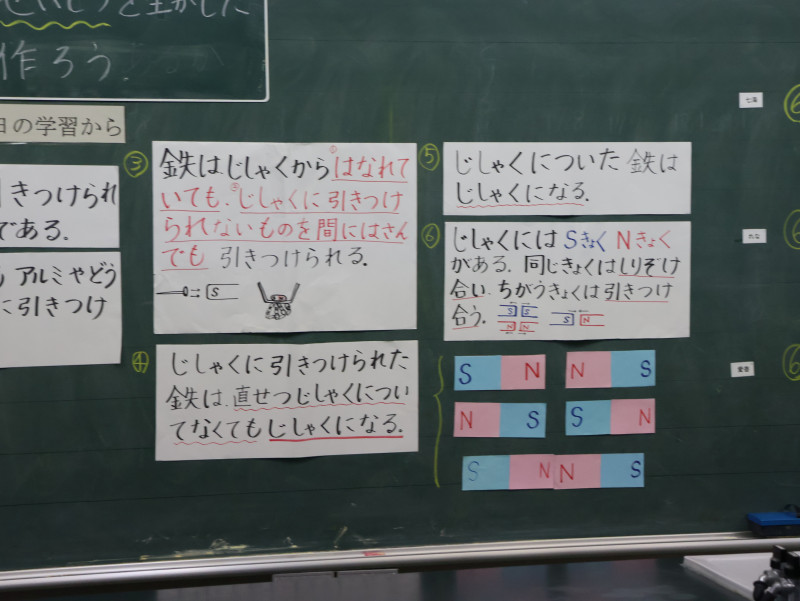 と生かした
作ろう.
日の学習から
引きつけられ
である.
アルミやどう
に引きつけ
③
鉄はじしゃくから①はなれて
いても.②じしゃくに引きつけ
られないものを間にはさん
でも 引きつけられる.
S
④
じしゃくに引きつけられた
鉄は.直せつじしゃくについ
てなくてもじしゃくになる.
⑤
じしゃくについた 鉄は
じしゃくになる.
⑥
じしゃくには Sきょく Nきょく
がある. 同じきょくはしりぞけ
合い. ちがうきょくは引きつけ
合う. S S S N
N N
S N N S
N S S N
S N N S
6
6
6